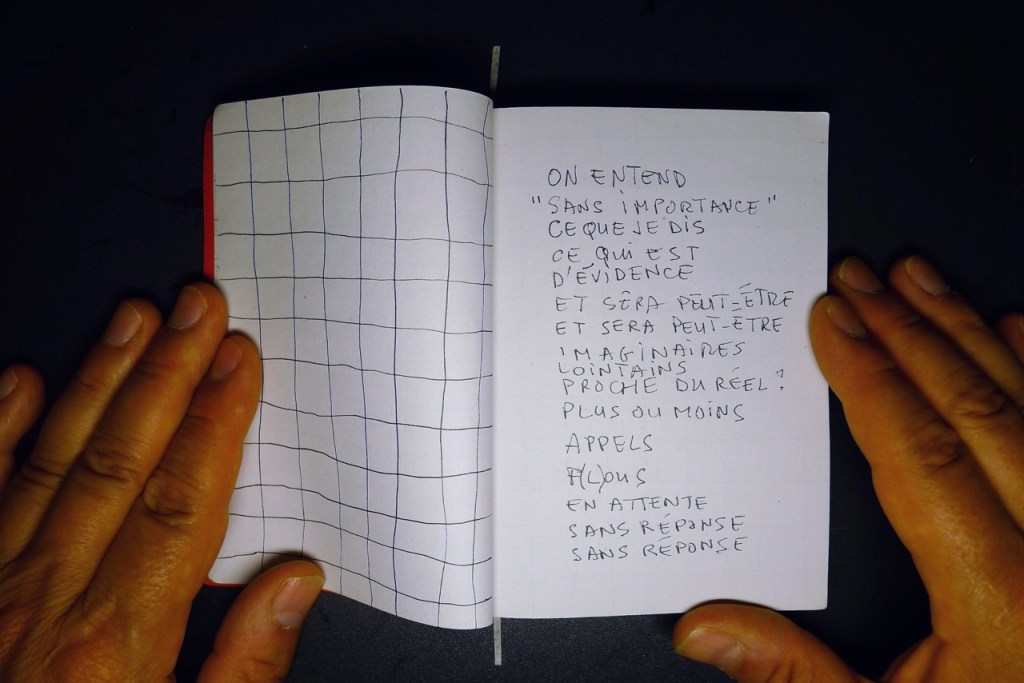 ON ENTEND
"SANS IMPORTANCE"
CE QUE JE DIS
CE QUI EST
D'ÉVIDENCE
ET SERA PEUT-ÊTRE
ET SERA PEUT-ETRE
IMAGINAIRES
LOINTAINS
PROCHE DU RÉEL ?
PLUS OU MOINS
APPELS
F(L)OUS
EN ATTENTE
SANS RÉPONSE
SANS RÉPONSE